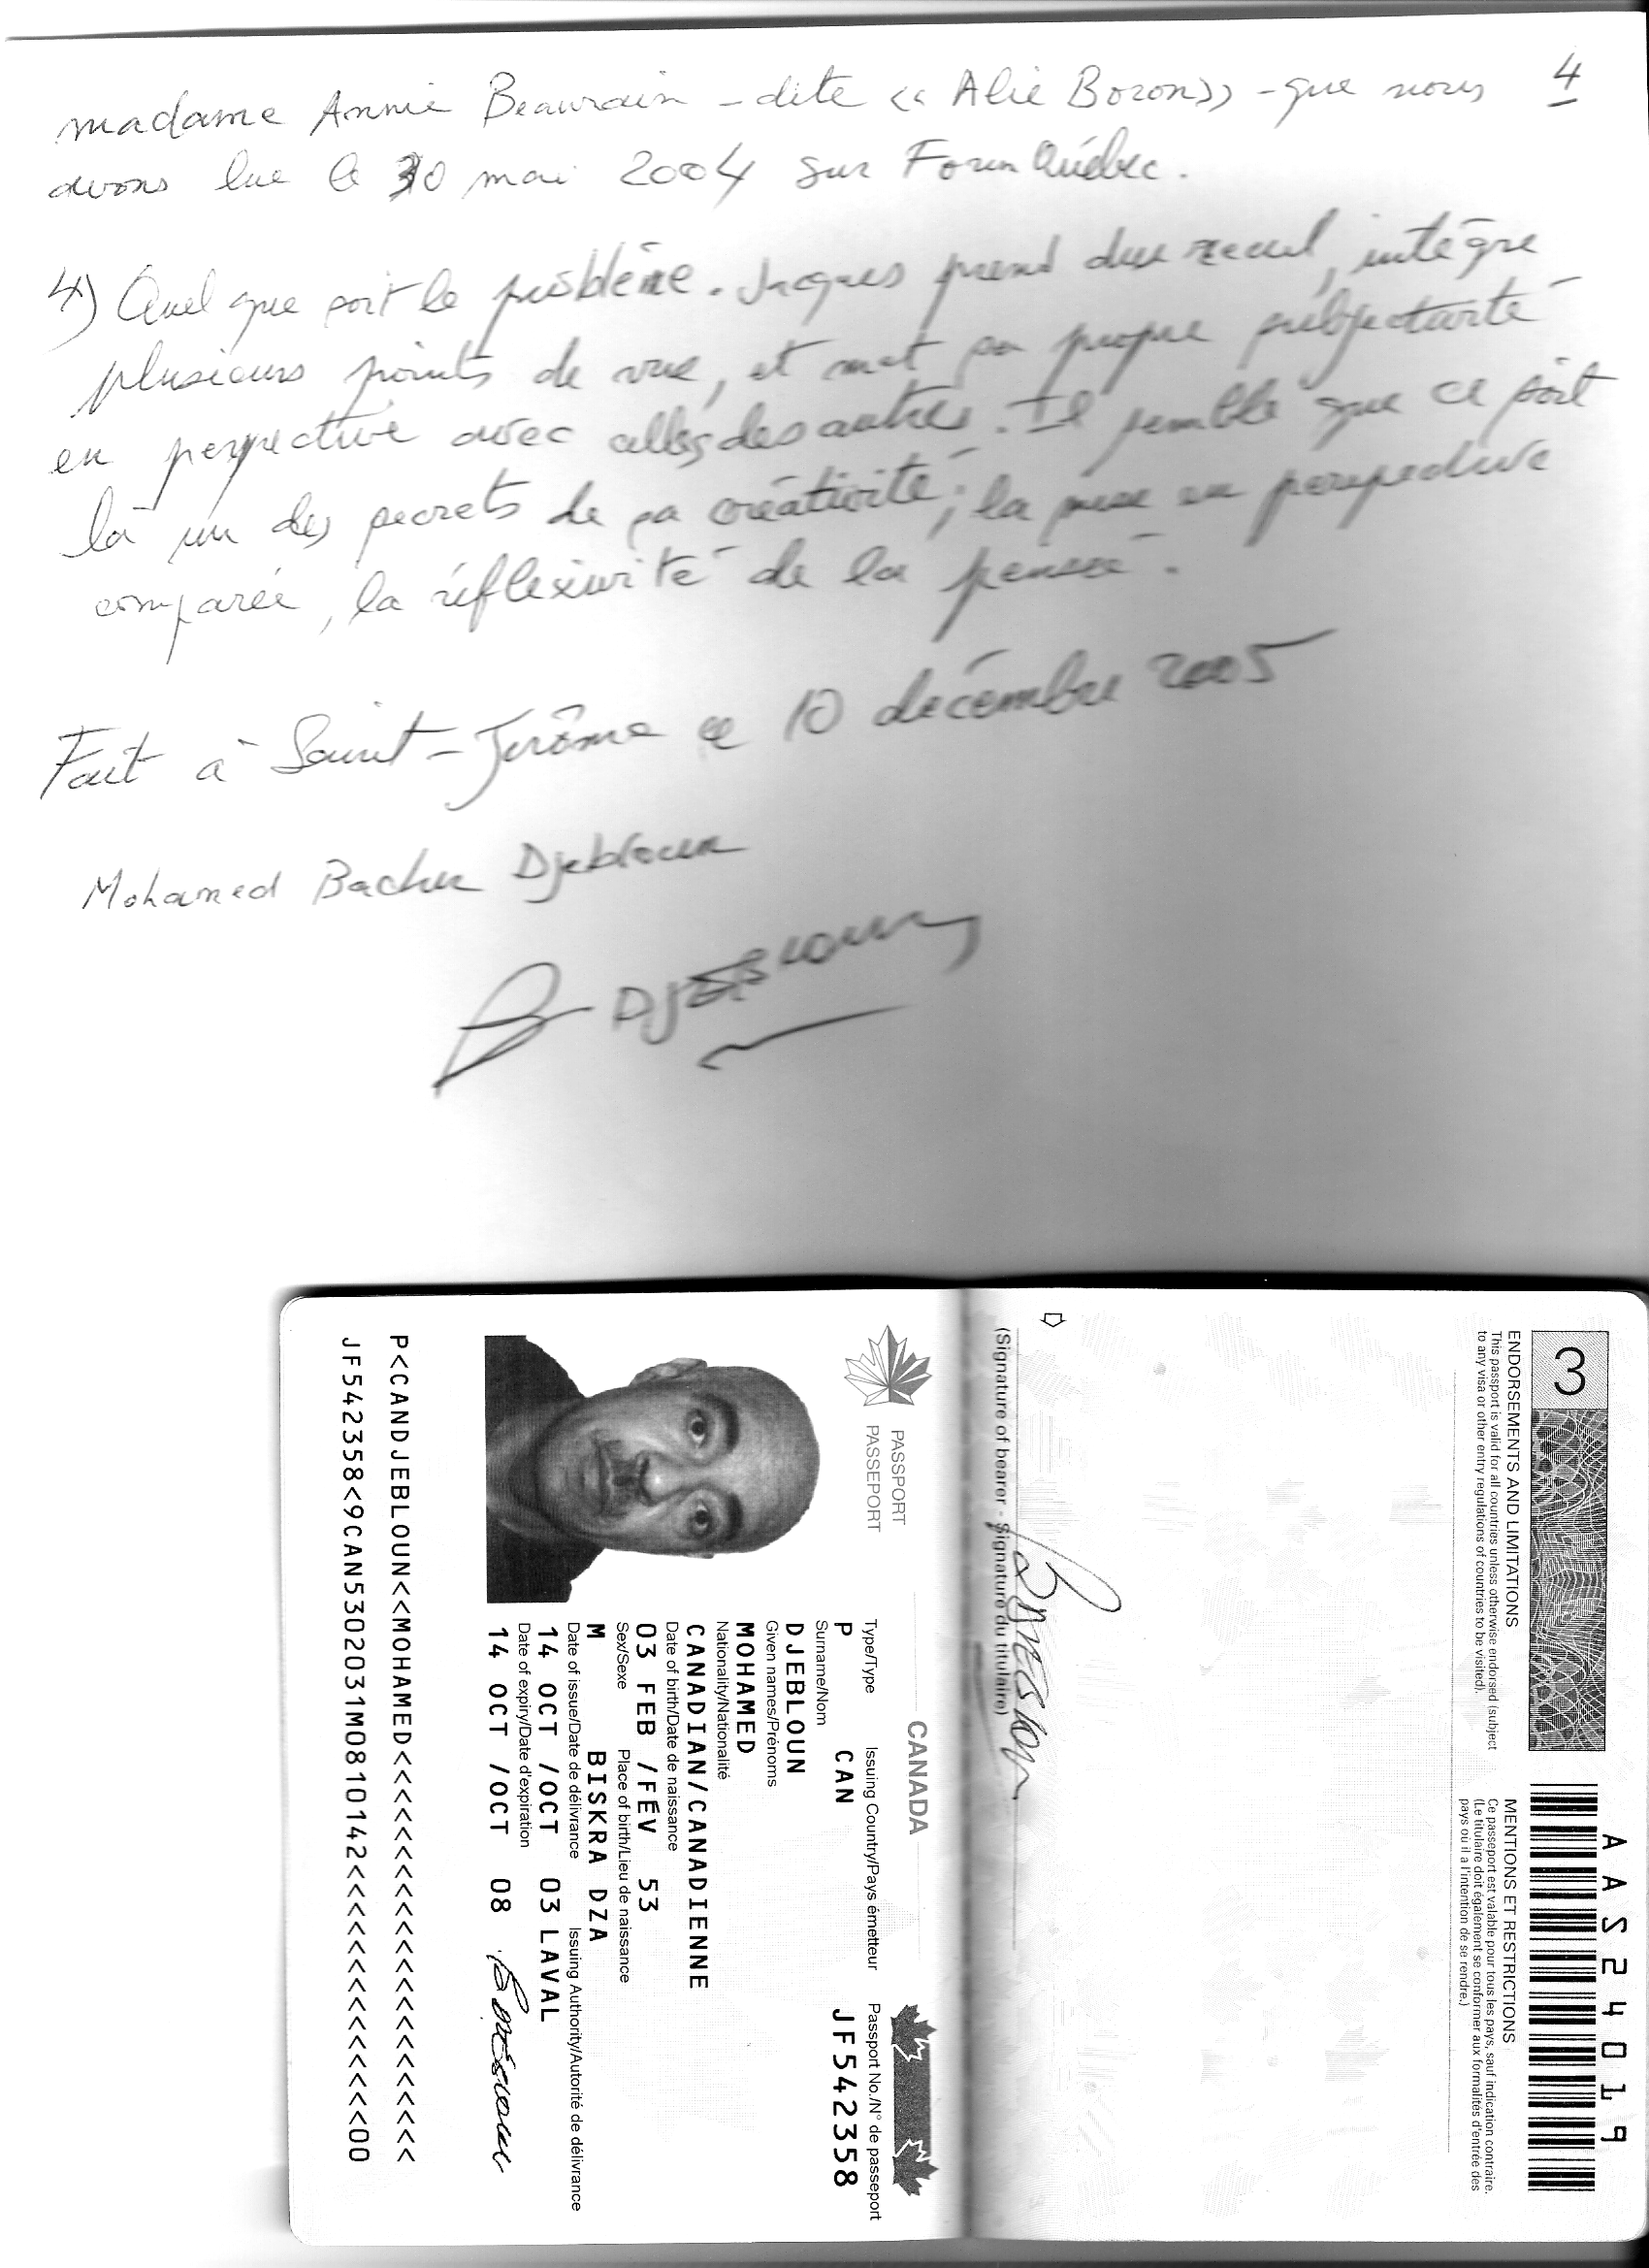 4
madame Annie Beaurain - dite « Alie Boron» - que nous
avons lue le 30 mai 2004 sur Forum Québec.
4) Quel que soit le problème. Jacques prend du recul, intègre
plusieurs points de vue, et met sa propre subjectivité
en perspective avec celles des autres. Il semble que ce soit
là un des secrets de sa créativité; la mise en perspective
comparée, la réflexivité de la pensée.
Fait à Saint-Jérôme ce 10 décembre 2005
Mohamed Bachir Djebloun
B Djebloun
3
ENDORSEMENTS AND LIMITATIONS
This passport is valid for all countries unless otherwise endorsed (subject
to any visa or other entry regulations of countries to be visited).
MENTIONS ET RESTRICTIONS
Ce passeport est valable pour tous les pays, sauf indication contraire.
(Le titulaire doit également se conformer aux formalités d'entrée des
pays où il a l'intention de se rendre.)
AAS24019
(Signature of bearer - Signature du titulaire)
PASSPORT
PASSEPORT
CANADA
Type/Type Issuing Country/Pays émetteur Passport No./N° de passeport
P CAN JF542358
Surname/Nom
DJEBLOUN
Given names/Prénoms
MOHAMED
Nationality/Nationalité
CANADIAN/CANADIENNE
Date of birth/Date de naissance
03 FEB /FÉV 53
Sex/Sexe Place of birth/Lieu de naissance
M BISKRA DZA
Date of issue/Date de délivrance Issuing Authority/Autorité de délivrance
14 OCT /OCT 03 LAVAL
Date of expiry/Date d'expiration
14 OCT /OCT 08
P<CANDJEBLOUN<<MOHAMED<<<<<<<<<<<<<<<<<<<<<<
JF542358<9CAN5302031M0810142<<<<<<<<<<<<<<00